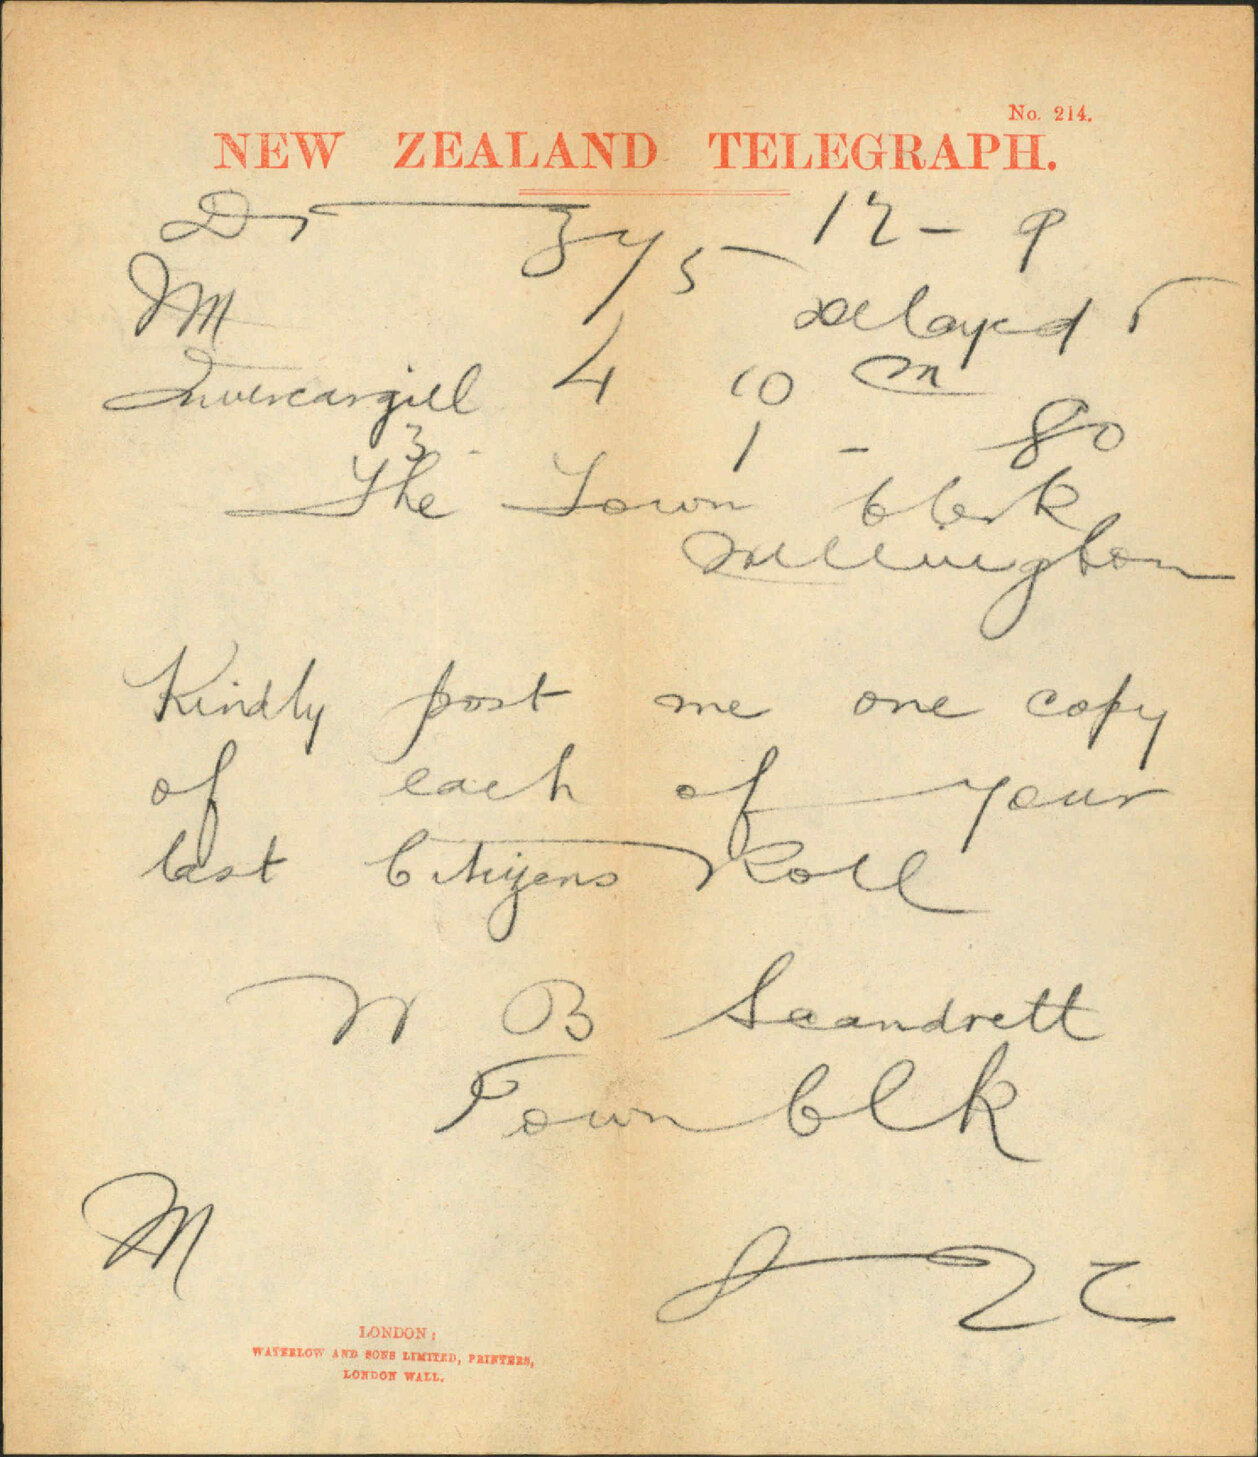 No. 214.
NEW ZEALAND TELEGRAPH.
12 - 9
M delayed
Invercargill 4 10 m
3 - 1 - 80
The Town Clerk
Wellington
Kindly post me one copy
of each of your
last Citizens Roll
W B Scandrett
Town Clk
M
LONDON:
WATERLOW AND SONS LIMITED, PRINTERS,
LONDON WALL.